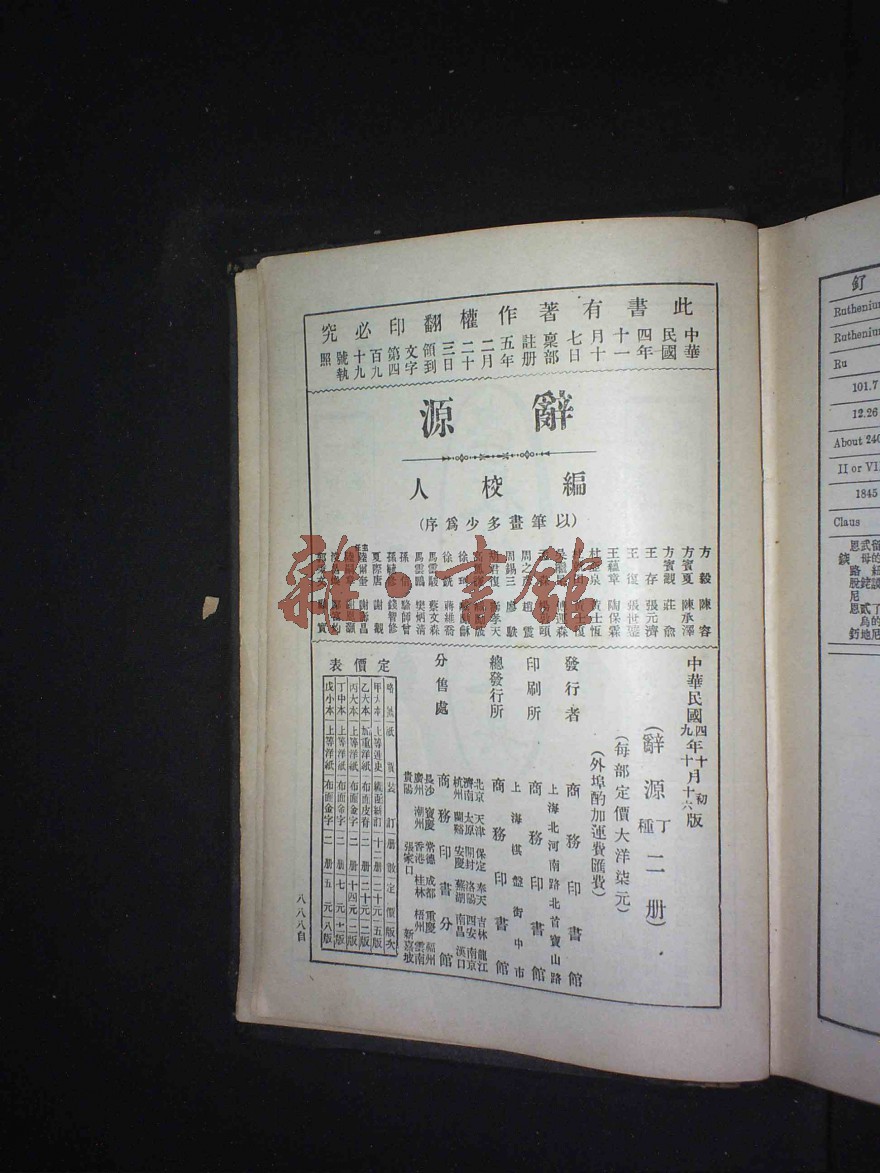 此書有著作權翻印必究
中華
民國
四年
十一
月十
七日
稟部
註册
五年
二月
二十
三日
領到
文字
第四
百九
十九
號執
照
辭源
編校人
(以筆畫多少爲序)
方毅 陳容
方賓夏 陳承澤
方賓觀 莊俞
王存 張元濟
王復 張世鎏
王蘊章 陶保霖
周錫三 廖
徐銑 蔣維喬
馬雲驤 蔡文森
馬雲鵬 樊炳清
孫 駱師曾
孫毓修 錢智修
夏際唐 謝觀
陸爾奎 謝壽昌
中華民國四年十月初版
九年十月十六版
(辭源丁種二册)
(每部定價大洋柒元)
(外埠酌加運費匯費)
發行者 商務印書館
上海北河南路北首寶山路
印刷所 商務印書館
上海棋盤街中市
總發行所 商務印書館
北京 天津 保定 奉天 吉林 龍江
濟南 太原 開封 洛陽 西安 南京
杭州 蘭谿 安慶 蕪湖 南昌 漢口
分售處 商務印書分館
長沙 寶慶 常德 成都 重慶 福州
廣州 潮州 香港 桂林 梧州 雲南
貴陽 張家口 新嘉坡
定價表
紙質 裝訂 册數 定價 版次
甲大本 上等連史 十二册 二十元 五版
乙大本 加重洋紙 布面皮脊 二册 二十元 二版
丙大本 上等洋紙 布面金字 二册 十四元 二版
丁中本 上等洋紙 布面金字 二册 七元
戊小本 上等洋紙 布面金字 二册 五元 八版
八八八自
雜·書館
釕
Ruthenium
Ruthenium
Ru
101.7
12.26
About 240
II or VI
1845
Claus